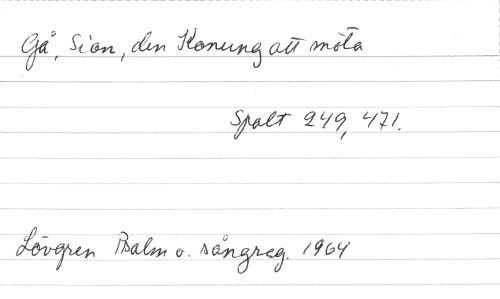 Gå, Sion, den Konung att möta
Spalt 249, 471.
Lövgren Psalm o. sångreg. 1964